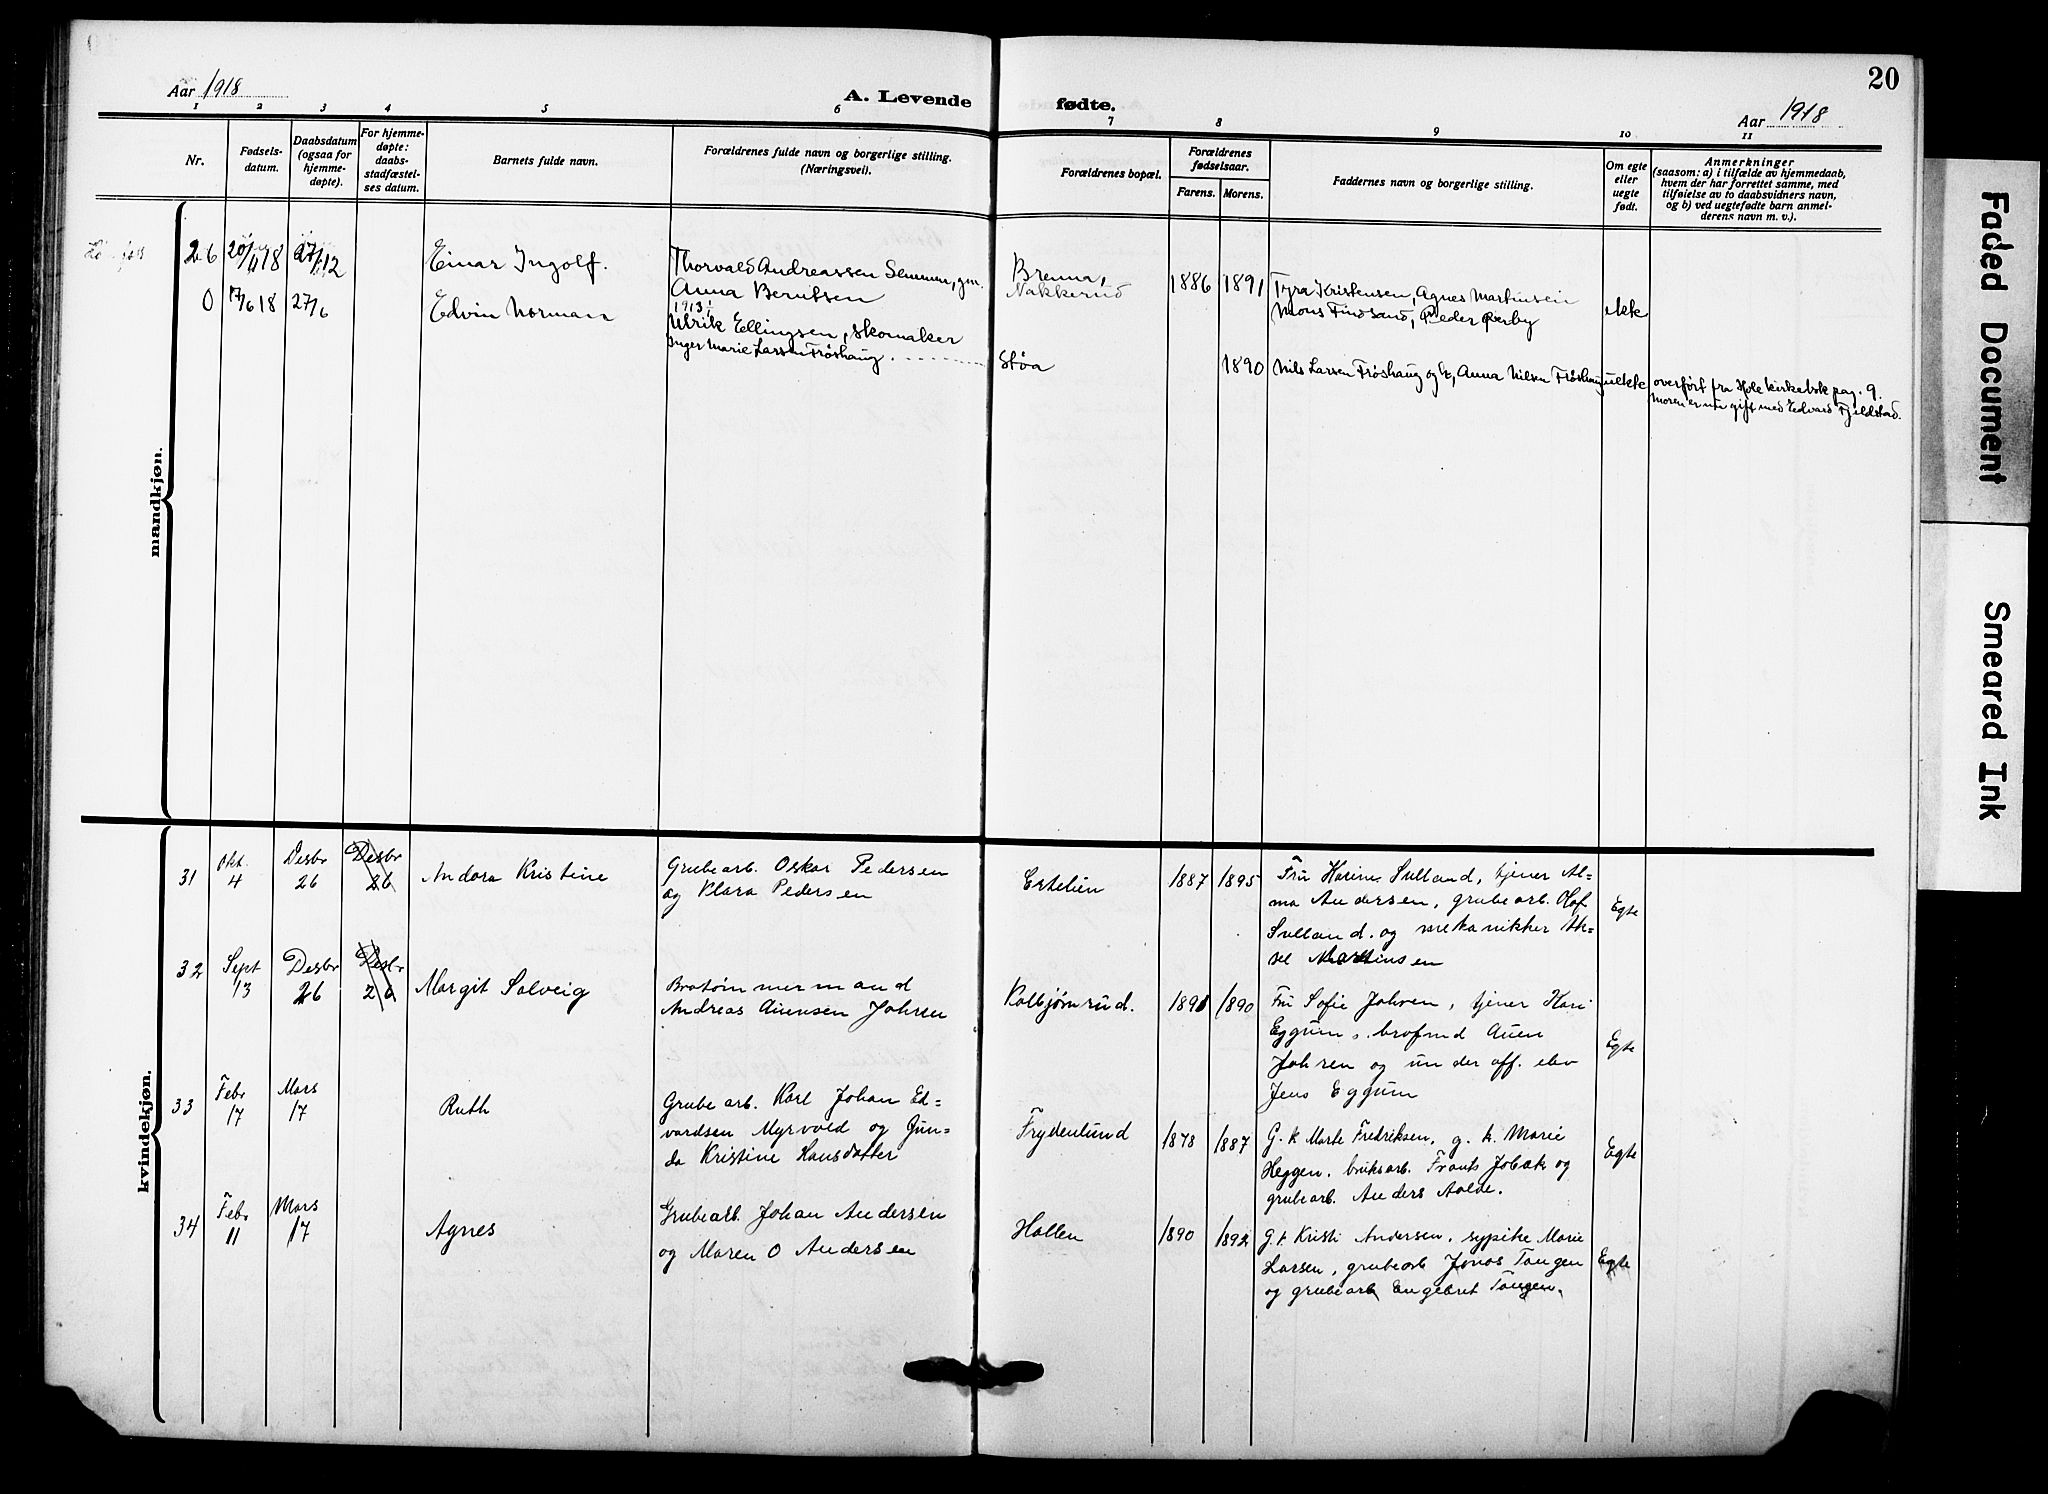 20
Aar 1918
A. Levende fødte.
Aar 1918
1 2 3 4 5 6 7 8 9 10 11
Nr.
Fødsels-
datum.
Daabsdatum
(ogsaa for
hjemme-
døpte).
For hjemme-
døpte:
daabs-
stadfæstel-
ses datum.
Barnets fulde navn.
Forældrenes fulde navn og borgerlige stilling.
(Næringsvei).
Forældrenes bopæl.
Forældrenes
fødselsaar.
Farens. Morens.
Faddernes navn og borgerlige stilling.
Om egte
eller
uegte
født.
Anmerkninger
(saasom: a) i tilfælde av hjemmedaab,
hvem der har forrettet samme, med
tilføielse av to daabsvidners navn,
og b) ved uegtefødte barn anmel-
derens navn m. v.).
mandkjøn.
26 20/11 18 27/12 Einar Ingolf.
Thorvald Andreassen Semmen, gm.
Anna Berntsen
1913!
Brenna,
Nakkerud
1886 1891
Tyra Kristensen, Agnes Martinsen
Mons Findsand, Peder Øerby
ekte
0 17/6 18 27/6 Edvin Norman
Ulrik Ellingsen, skomaker
Inger Marie Larsen Frøshaug
Støa
1890
Nils Larsen Frøshaug og h, Anna Nilsen Frøshaug
uekte
overført fra Hole kirkebok pag. 9.
moren er nu gift med Edvard Fjeldstad.
kvindekjøn.
31 Okt. 4 Desbr 26 Desbr 26 Andora Kristine
Grubearb. Oskar Pedersen
og Klara Pedersen
Estelien
1887 1895
Fru Karine Sulland, tjener Al-
ma Andersen, grubearb. Haf
Sulland. og mekanikker Ak-
sel Martinsen
Egte
32 Sept 13 Desbr 26 Desbr 26 Margit Solveig
Bratømmermand
Andreas Auensen Johsen
Kolbjørnrud.
1891 1890
Fru Sofie Johsen, tjener Kari
Eggum, brofmd Auen
Johsen og under off. elev
Jens Eggum
Egte
33 Febr 17 Mars 17 Ruth
Grubearb. Karl Johan Ed-
vardsen Myrvold og Gun-
da Kristine Hansdatter
Frydenlund
1878 1887
G. k Marte Fredriksen, g. k. Marie
Heggen, bruksarb. Frants Jobak og
grubearb. Anders Aalde.
Egte
34 Febr 11 Mars 17 Agnes
Grubearb. Johan Andersen
og Maren O Andersen
Hallen
1890 1892
G. k Kristi Andersen, sypike Marie
Larsen, grubearb Jonas Tangen
og grubearb Engebret Tangen.
Egte
Faded Document
Smeared Ink